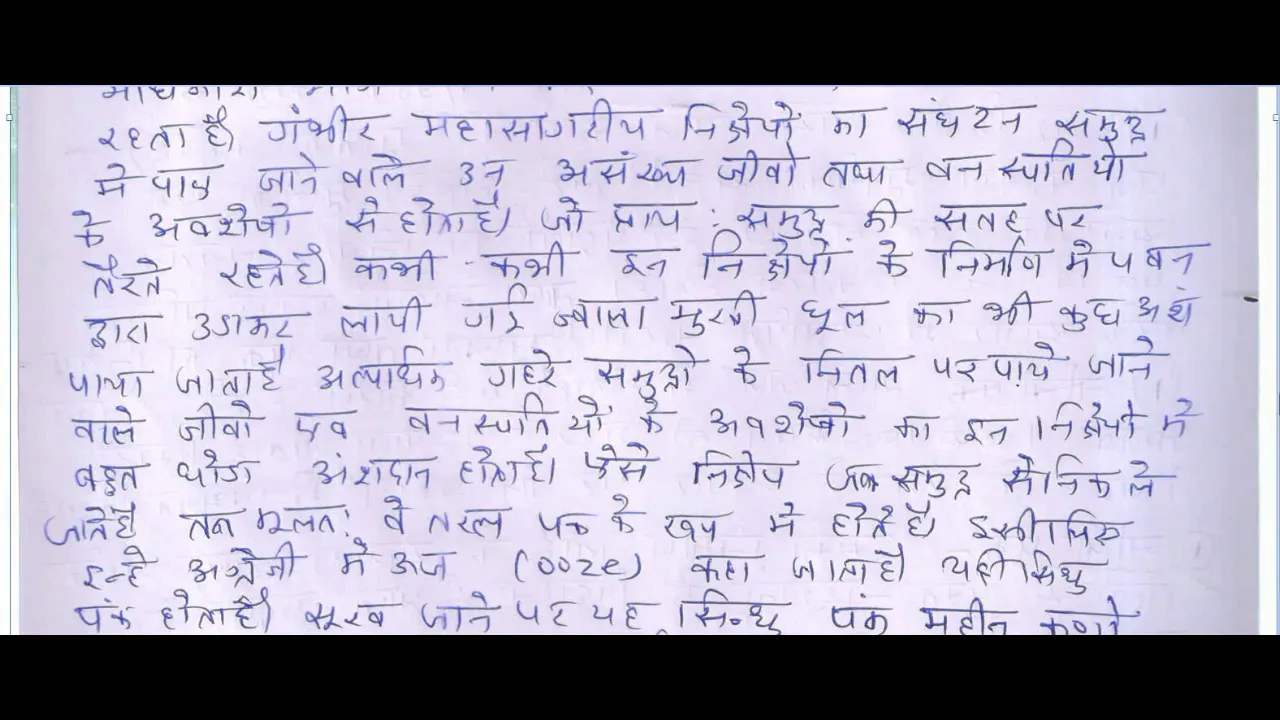 रहता है। गंभीर महासागरीय निक्षेपो का संघटन समुद्र
मे पाए जाने वाले उन असंख्य जीवो तथा वनस्पतियो
के अवशेषो से होता है। जो प्राय: समुद्र की सतह पर
तैरते रहते है। कभी कभी इन निक्षेपो के निर्माण मे पवन
द्वारा उडाकर लायी गई ज्वाला मुखी धूल का भी कुछ अंश
पाया जाता है अत्याधिक गहरे समुद्रो के नितल पर पाये जाने
वाले जीवो एव वनस्पतियो के अवशेषो का इन निक्षेपो मे
बहुत थोडा अंशदान होता है। ऐसे निक्षेप जब समुद्र से निकाले
जाते है तब मूलत: वे तरल पंक के रूप मे होते है। इसीलिए
इन्हे अंग्रेजी मे ऊज (ooze) कहा जाता है यही सिंधु
पंक होता है। सूख जाने पर यह सिन्धु पंक महीन कणो